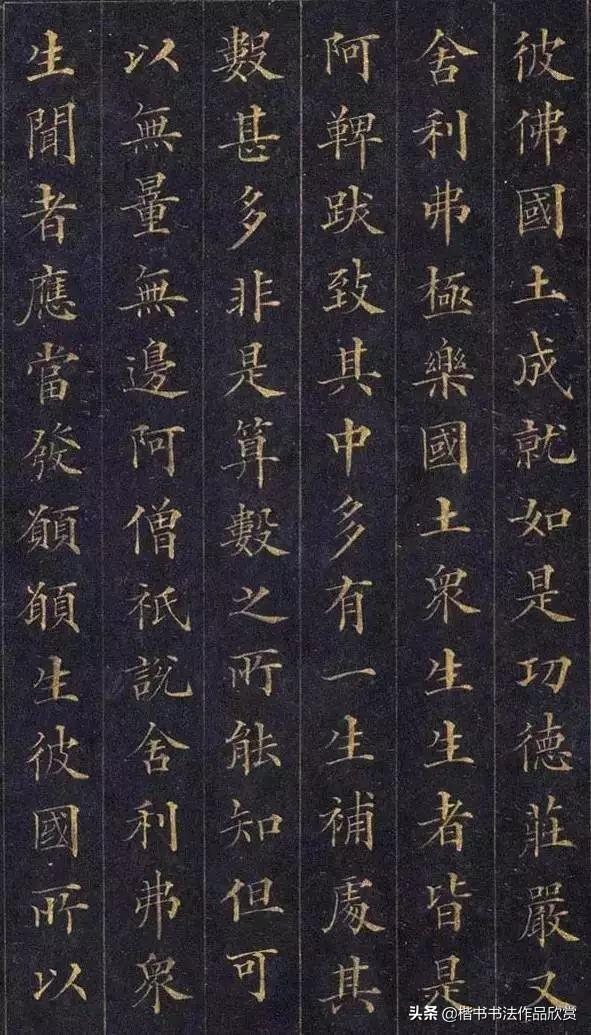 彼佛國土成就如是功德莊嚴又
舍利弗極樂國土衆生生者皆是
阿鞞跋致其中多有一生補處其
數甚多非是算數之所能知但可
以無量無邊阿僧祇說舍利弗衆
生聞者應當發願願生彼國所以
头条 @楷书书法作品欣赏